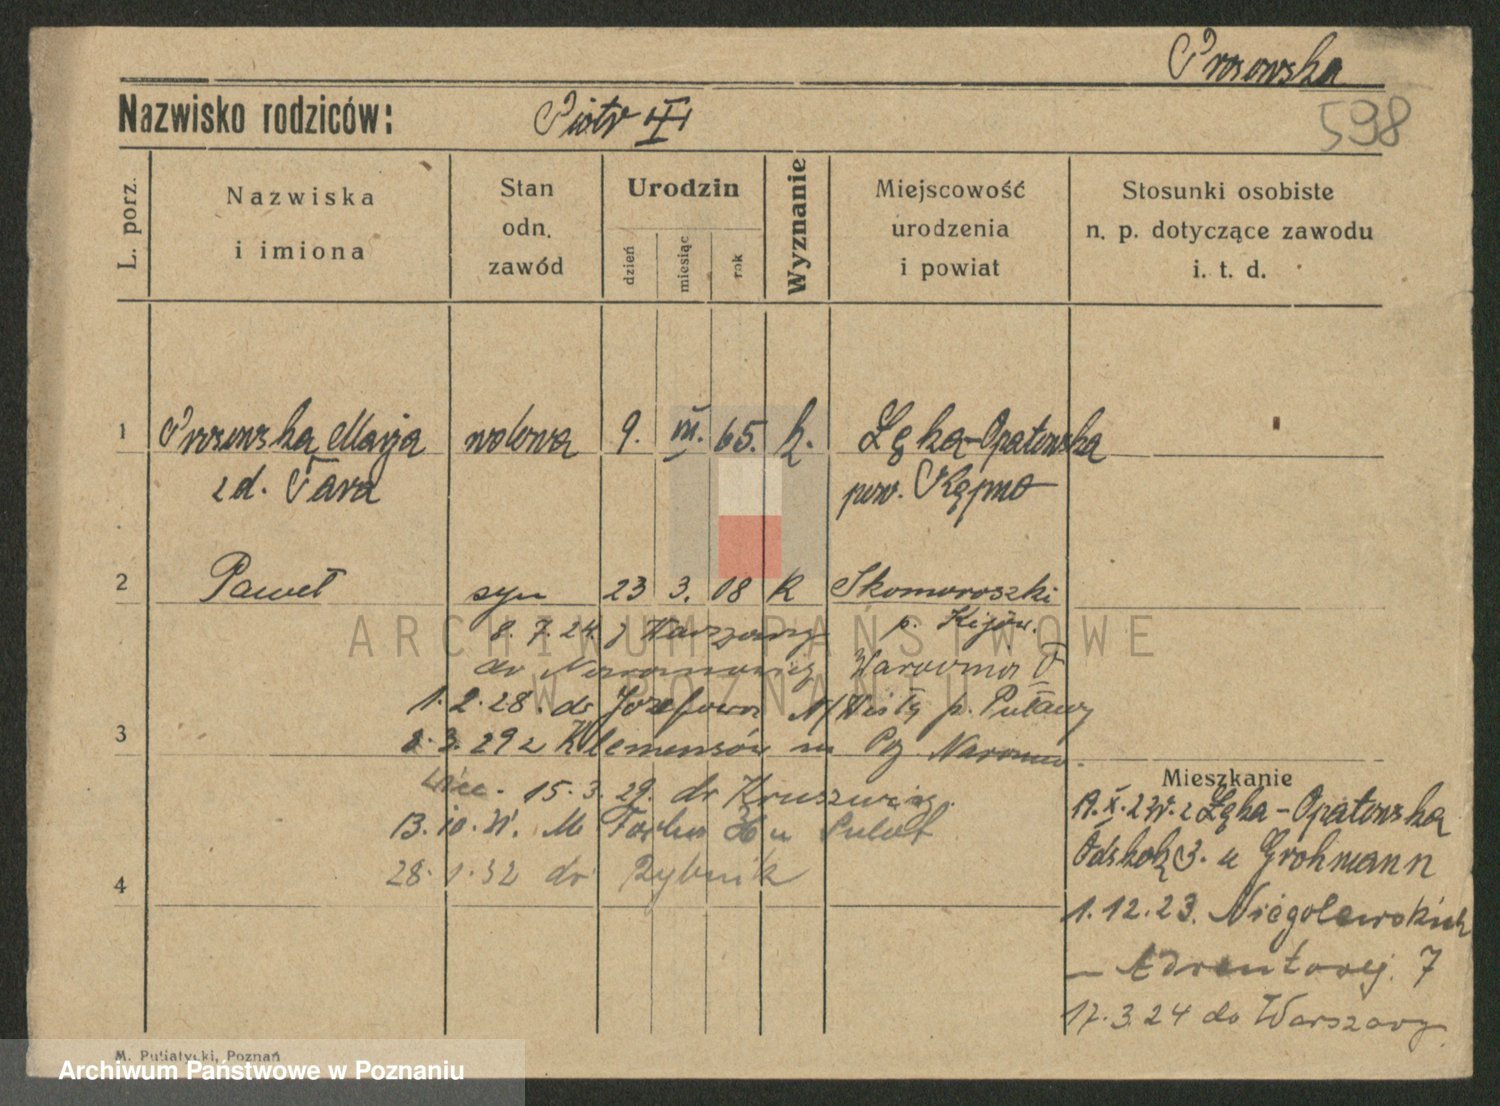 Prosowska
Nazwisko rodziców: Piotr
598
L. porz.
Nazwiska
i imiona
Stan
odn.
zawód
Urodzin
dzień
miesiąc
rok
Wyznanie
Miejscowość
urodzenia
i powiat
Stosunki osobiste
n. p. dotyczące zawodu
i. t. d.
1 Prosowska Marja wdowa 9. III. 65. k. Łęka-Opatowska
z d. Fara pow. Kępno
2 Paweł syn 23 3. 08 k Skomoroszki
p. Kijów.
8. 7. 24. z Warszawy
do
1. 2. 28. do Józefowa n/Wisłą p. Puławy
3
3. 29 z Klemensów
15. 3. 29. do Kruszwicy.
13. 10. 31.
4
28. 1. 32 do Rybnik
Mieszkanie
19. X. 23r. z Łęka-Opatowska
u Grohmann
1. 12. 23. Niegolewskich
7
17. 3. 24 do Warszawy
ARCHIWUM PAŃSTWOWE
W POZNANIU
M. Putiatycki, Poznań
Archiwum Państwowe w Poznaniu